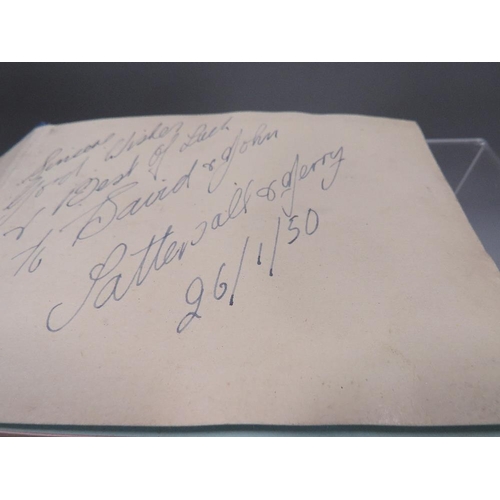 Sincere
Good Wishes
& Best of Luck
to David & John
Tattersall & Jerry
26/1/50